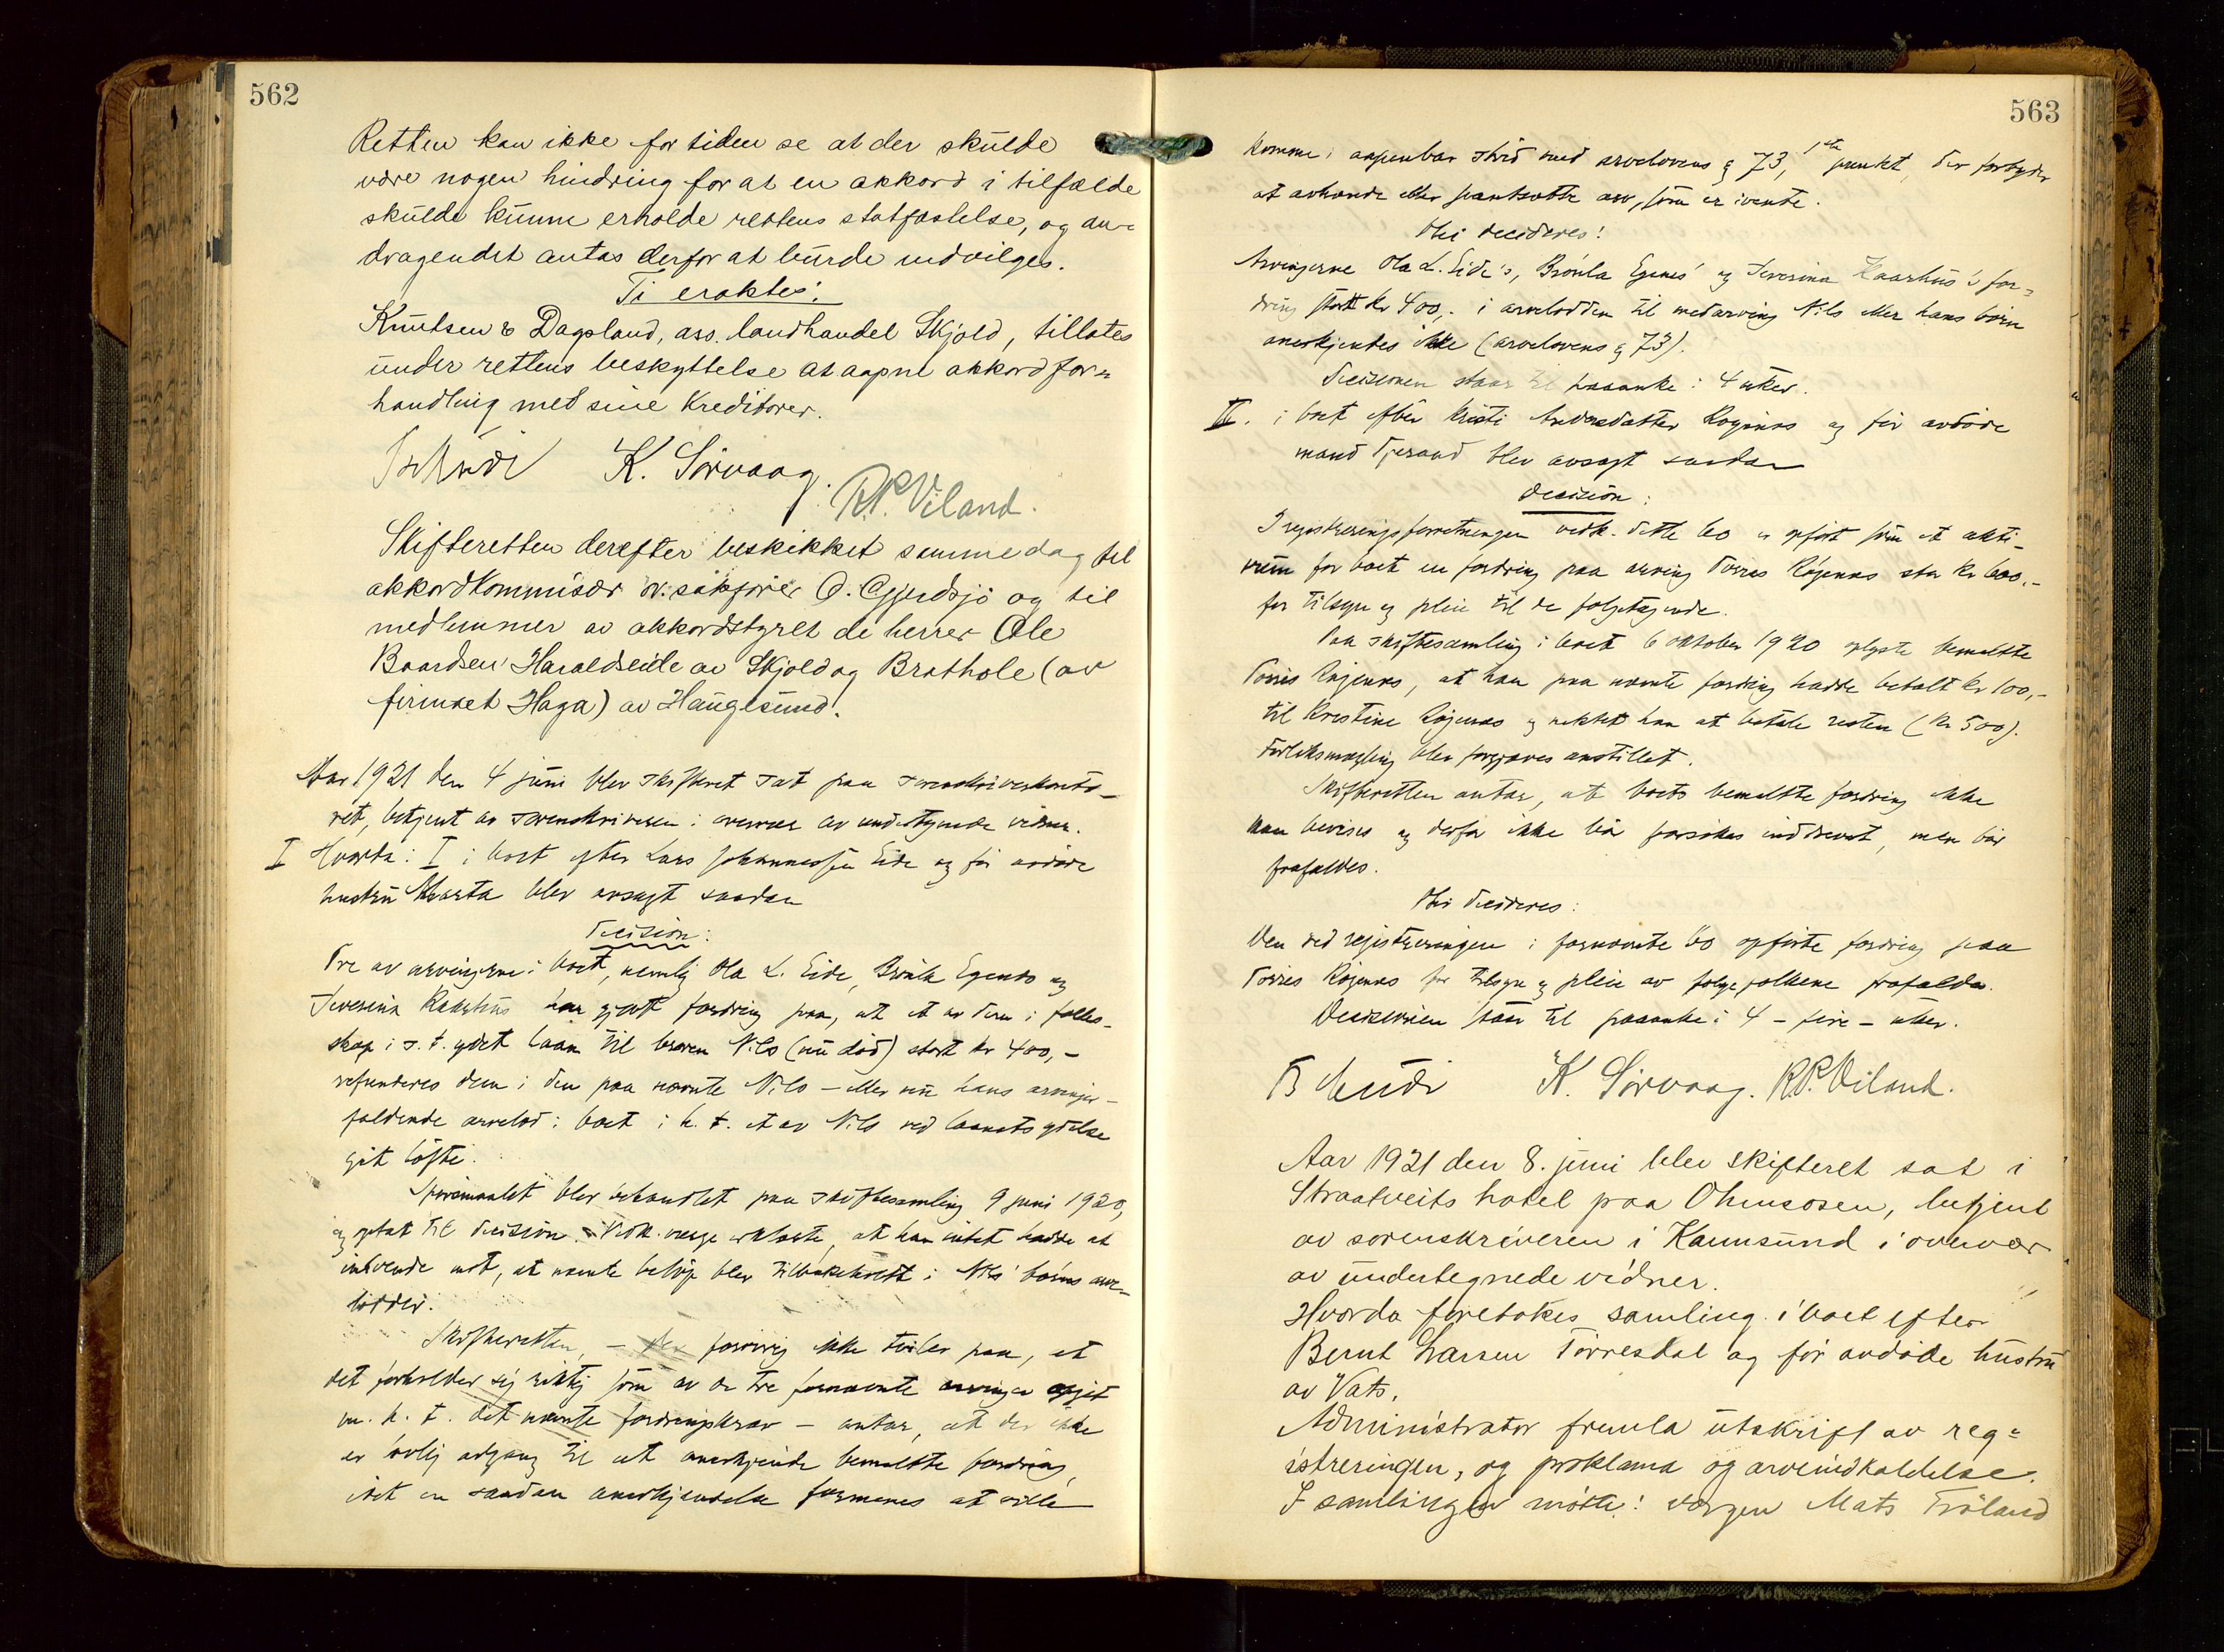 562
Retten kan ikke for tiden se at der skulde
være nogen hindring for at en akkord i tilfælde
skulde kunne erholde rettens statfæstelse, og an-
dragendet antas derfor at burde indvilges.
Ti eraktes:
Knutsen & Dagsland, ass. landhandel Skjold, tillates
under rettens beskyttelse at aapne akkordfor=
handling med sine kreditorer.
K. Sørvaag. R.P. Viland.
Skifteretten derefter beskikket samme dag til
akkordkommisær o.r.sakfører O. Gjerdsjø og til
medlemmer av akkordstyret de herrer Ole
Baardsen Haraldseide av Skjold og Brathole (av
firmaet Haga) av Haugesund.
Aar 1921 den 4 juni blev skifteret sat paa sorenskriverkonto-
ret, betjent av sorenskriveren i overvær av undertegnede vidner.
I Hvorda: I i boet efter Lars Johannessen Eide og før avdøde
hustru Marta blev avsagt saadan
decision:
Tre av arvingerne i boet, nemlig Ola L. Eide, Brønla Egenes og
Severina har gjort fordring paa, at et av dem i fælles-
skap i s. t. ydet laan til broren Nils (nu død) stort kr 400,-
refunderes dem i den paa nævnte Nils - eller nu hans arvinger -
faldende arvelod i boet i h. t. et av Nils ved laanets ydelse
git løfte.
Spørsmaalet blev behandlet paa skiftesamling 9 juni 1920,
og optat til decision. Vedk. verge erklærte, at han intet hadde at
indvende mot, at nævnte beløp blev tilbakeholdt i Nils' børns arve-
lodder.
Skifteretten, - der forøvrig ikke tviler paa, at
det forholder sig riktig som av de tre fornævnte arvinger opgit
m. h. t. det nævnte fordringskrav - antar, at der ikke
er lovlig adgang til at anerkjende bemeldte fordring,
idet en saadan anerkjendelse formenes at ville
563
komme i aapenbar strid med arvelovens § 73, 1ste punkt, der forbyder
at avhænde eller pantsætte arv, som er ivente.
Thi decideres:
Arvingerne Ola L. Eide's, Brønla Egenes' og Severina Haarhus's for=
dring stort kr 400,- i arvelodden til medarving Nils eller hans børn
anerkjendes ikke (arvelovens § 73).
Decisionen staar til paaanke i 4 uker.
II. i boet efter Kristi Andersdatter Røgenes og før avdøde
mand Tjerand blev avsagt saadan
decision:
I registreringsforretningen vedk. dette bo er opført som et akti-
vum for boet en fordring paa arving Torres Røgenes stor kr 600,-
for tilsyn og pleie til de
Paa skiftesamling i boet 6 oktober 1920 oplyste bemeldte
Torres Røgenes, at han paa nævnte fordring hadde betalt kr 100,-
til Kristine Røgenes og nektet han at betale resten (kr 500).
Forliksmægling blev forgjæves anstillet.
Skifteretten antar, at boets bemeldte fordring ikke
kan bevises og derfor ikke bør forsøkes inddrevet, men bør
frafaldes.
Thi decideres:
Den ved registreringen i fornævnte bo opførte fordring paa
Torres Røgenes for tilsyn og pleie av følgefolkene frafaldes.
Decisionen staar til paaanke i 4 - fire - uker.
K. Sørvaag. R.P. Viland.
Aar 1921 den 8. juni blev skifteret sat i
Straatveits hotel paa Ølensosen, betjent
av sorenskriveren i Karmsund i overvær
av undertegnede vidner.
Hvorda foretokes samling i boet efter
Bernt Larsen Tørresdal og før avdøde hustru
av Vats.
Administrator fremla utskrift av reg=
istreringen, og proklama og arveindkaldelse.
I samlingen møtte: vergen Mats Frøland